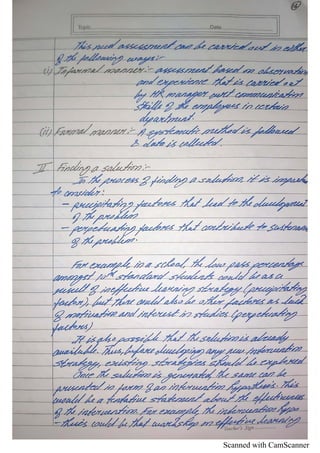 Topic
Date
This need assessment can be carried out in either
of the following ways:-
(i) Informal manner:- assessment based on observation
and experience that is carried out
by HR manager wrt communication
skills of the employees in certain
department.
(ii) Formal manner:- A systematic method is followed
& data is collected.
II Finding a solution:-
In the process of finding a solution, it is important
to consider:
- precipitating factors that lead to the development
of the problem
- perpetuating factors that contribute to sustenance
of the problem.
For example, in a school, the low pass percentage
amongst 10th standard students could be as a
result of ineffective learning strategy (precipitating
factor), but there could also be other factors as lack
of motivation and interest in studies (perpetuating
factors)
It is also possible that the solution is already
available. Thus, before developing any new intervention
strategy, existing strategies should be explored.
Once the solution is generated, the same can be
presented in form of an intervention hypothesis. This
would be a tentative statement about the effectiveness
of the intervention. For example, the intervention hypo
- thesis could be that workshop on effective learning
Teacher's Sign
Scanned with CamScanner